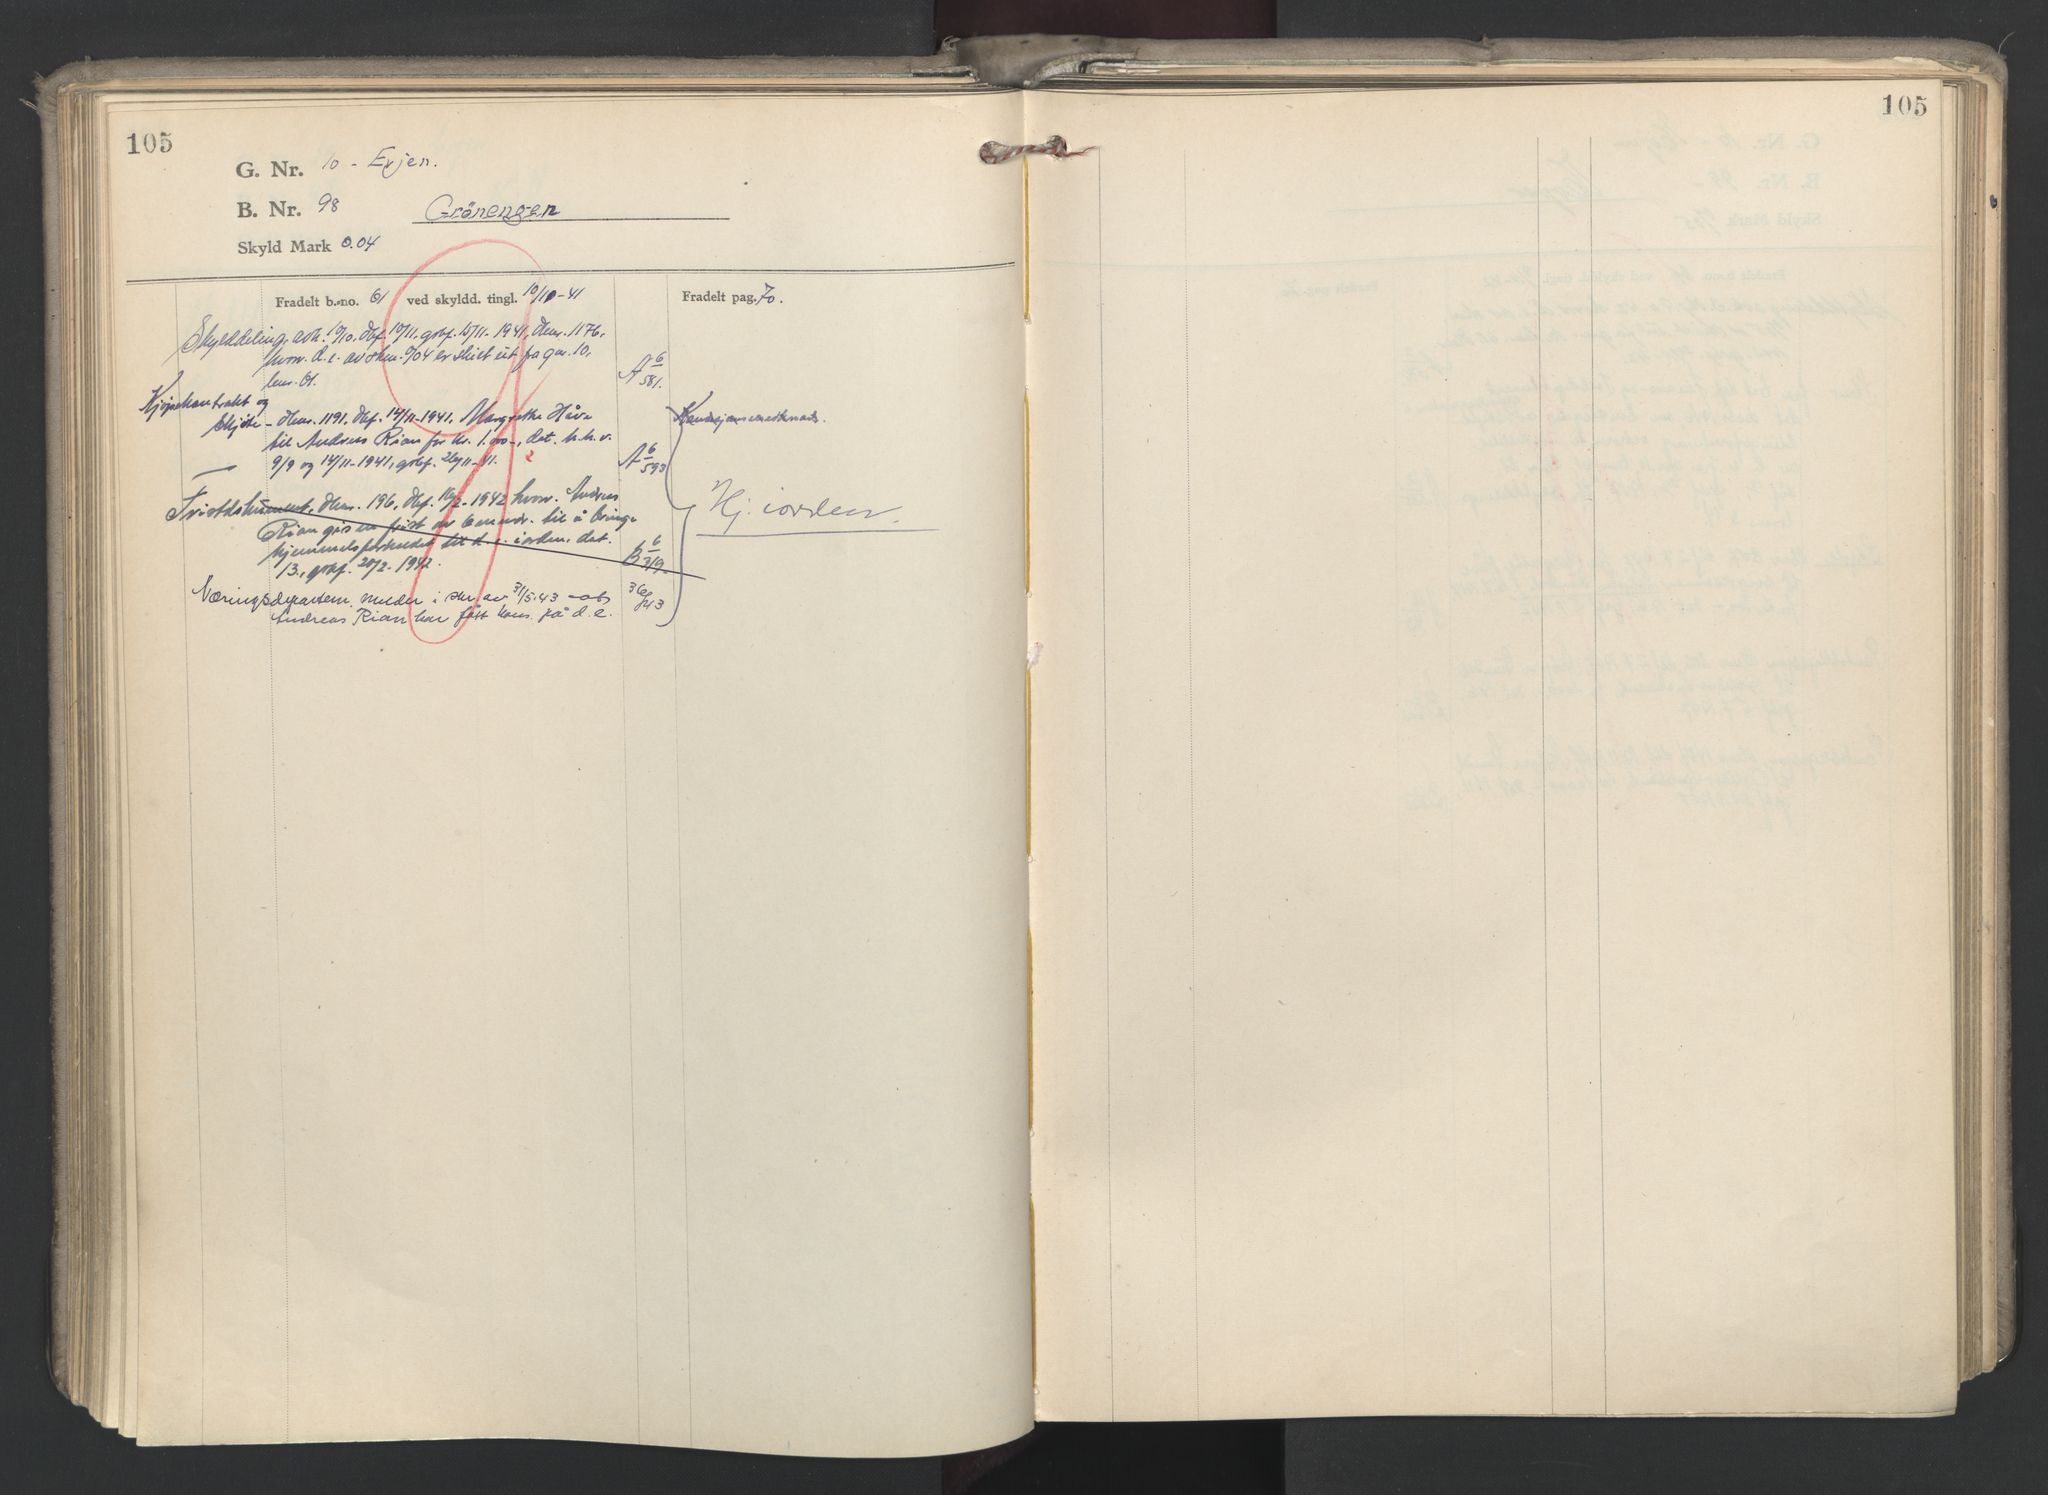 105
G. Nr. 10 - Evjen.
B. Nr. 98 Grönengen
Skyld Mark 0.04
Fradelt b.-no. 61 ved skyldd. tingl. 10/11-41
Fradelt pag. 70.
Skylddeling, avh. 10/10, dbf. 10/11, grbf. 15/11-1941, dbnr. 1176,
hvor. d.e. av skm. 0/04 er skilt ut fra gnr. 10,
bnr. 61.
A 6/581.
Kjøpekontrakt og
Skjöte - dbnr. 1191, dbf. 14/11-1941, Margrethe Håve
til Andreas Rian for kr. 1.000-, dat. h.h.v.
9/9 og 14/11-1941, grbf. 26/11-41.
A 6/593
Konsesjonsmerknad.
Fristdokument, dbnr. 196, dbf. 16/2-1942 hvor. Andreas
Rian gis en frist av 6 mndr. til å bringe
hjemmelsforholdet til d.e. i orden, dat.
13., grbf. 20/2-1942.
B 6/219.
Hj. i orden.
Næringsdepartem. melder i skr av 31/5.43 - at
Andreas Rian har fått kons. på d.e.
36/43
105